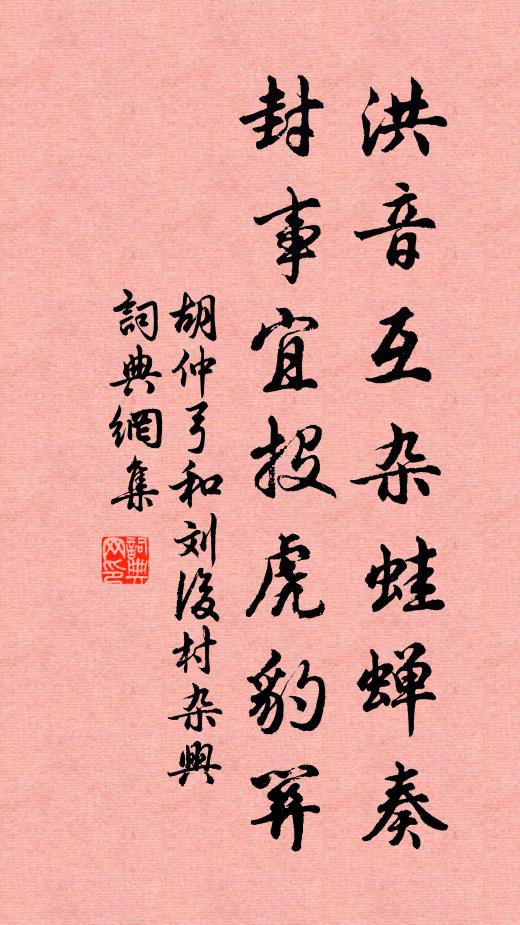 洪音互杂蛙蝉奏
封事宜投虎豹关
胡仲弓和刘後村杂興
詞典網集
詞典网印